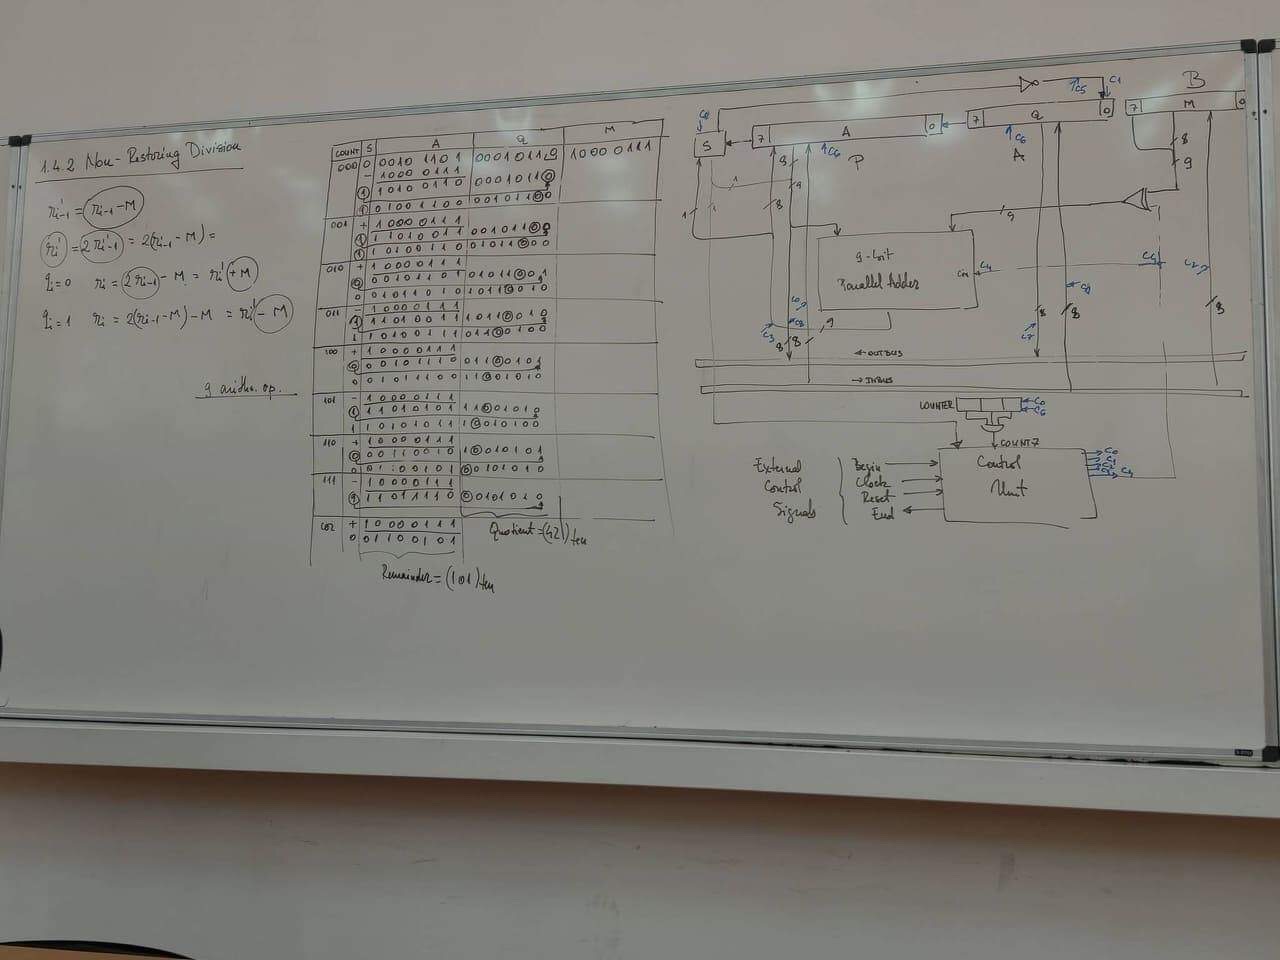 1.4.2. Non-Restoring Division
r'i-1 = ri-1 - M
r'i = 2r'i-1 = 2(ri-1 - M) =
qi=0 ri = 2ri-1 - M = r'i + M
qi=1 ri = 2(ri-1 - M) - M = r'i - M
9 arithm. op.
COUNT S A Q M
000 0 0010 1101 0001011 10000111
- 1000 0111
1 1010 0110 0001011 0
0 1001100 001011 0 0
001 + 1 0 0 0 0 1 1 1
1 1 1 0 1 0 0 1 1 001011 0 0
1 1 0 1 0 0 1 1 0 01011 0 0 0
010 + 1 0 0 0 0 1 1 1
0 0 0 1 0 1 1 0 1 01011 0 0 1
0 0 1 0 1 1 0 1 0 1011 0 0 1 0
011 - 1 0 0 0 0 1 1 1
1 1 1 0 1 0 0 1 1 1011 0 0 1 0
1 1 0 1 0 0 1 1 1 011 0 0 1 0 0
100 + 1 0 0 0 0 1 1 1
0 0 0 1 0 1 1 1 0 011 0 0 1 0 1
0 0 1 0 1 1 1 0 0 11 0 0 1 0 1 0
101 - 1 0 0 0 0 1 1 1
1 1 1 0 1 0 1 0 1 11 0 0 1 0 1 0
1 1 0 1 0 1 0 1 1 1 0 0 1 0 1 0 0
110 + 1 0 0 0 0 1 1 1
0 0 0 1 1 0 0 1 0 1 0 0 1 0 1 0 1
0 0 1 1 0 0 1 0 1 0 0 1 0 1 0 1 0
111 - 1 0 0 0 0 1 1 1
1 1 1 0 1 1 1 1 0 0 0 1 0 1 0 1 0
+ 1 0 0 0 0 1 1 1
0 0 1 1 0 0 1 0 1
Quotient = (42)ten
Remainder = (101)ten
B
S 7 A 0 7 Q 0 7 M 0
P A
9-bit
Parallel Adder
Cin
← OUTBUS
→ INBUS
COUNTER
COUNT7
External
Control
Signals
Begin
Clock
Reset
End
Control
Unit